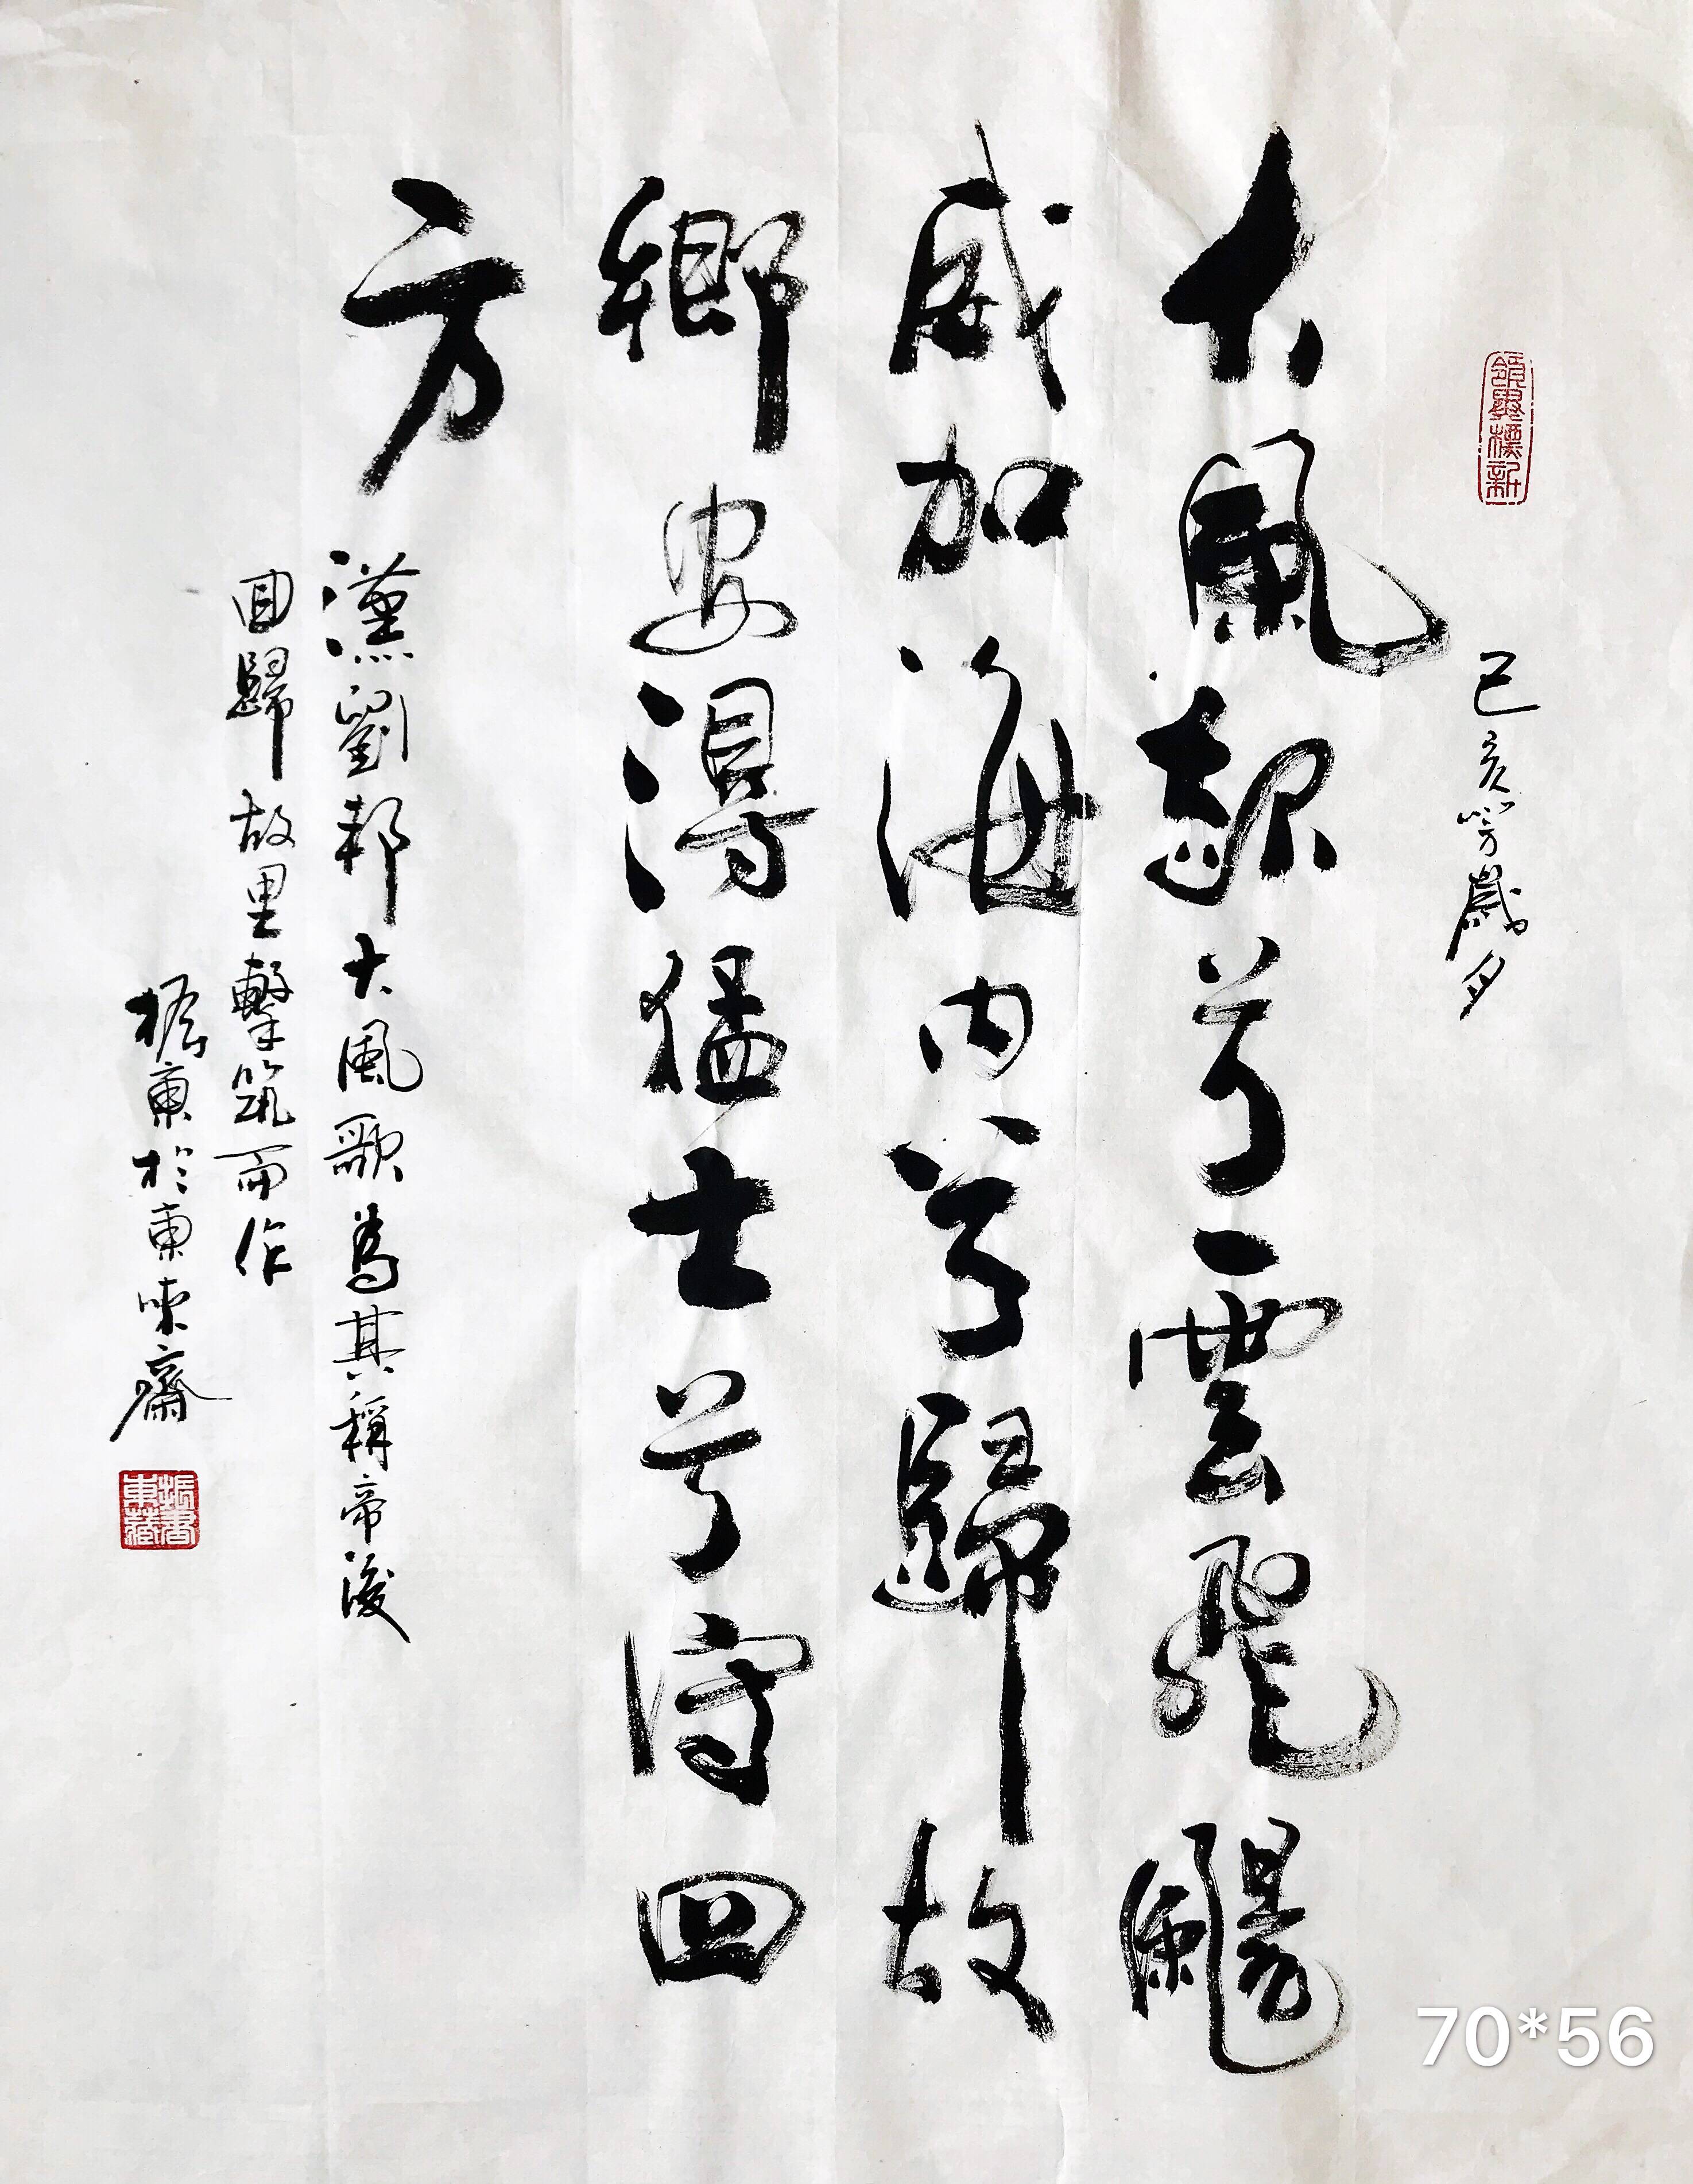 領異標新
己亥歲夕
大風起兮雲飛颺
威加海内兮歸故
鄉安得猛士兮守四
方
漢劉邦大風歌爲其稱帝後
回歸故里擊筑而作
振東於東齋
振書東藏
70*56